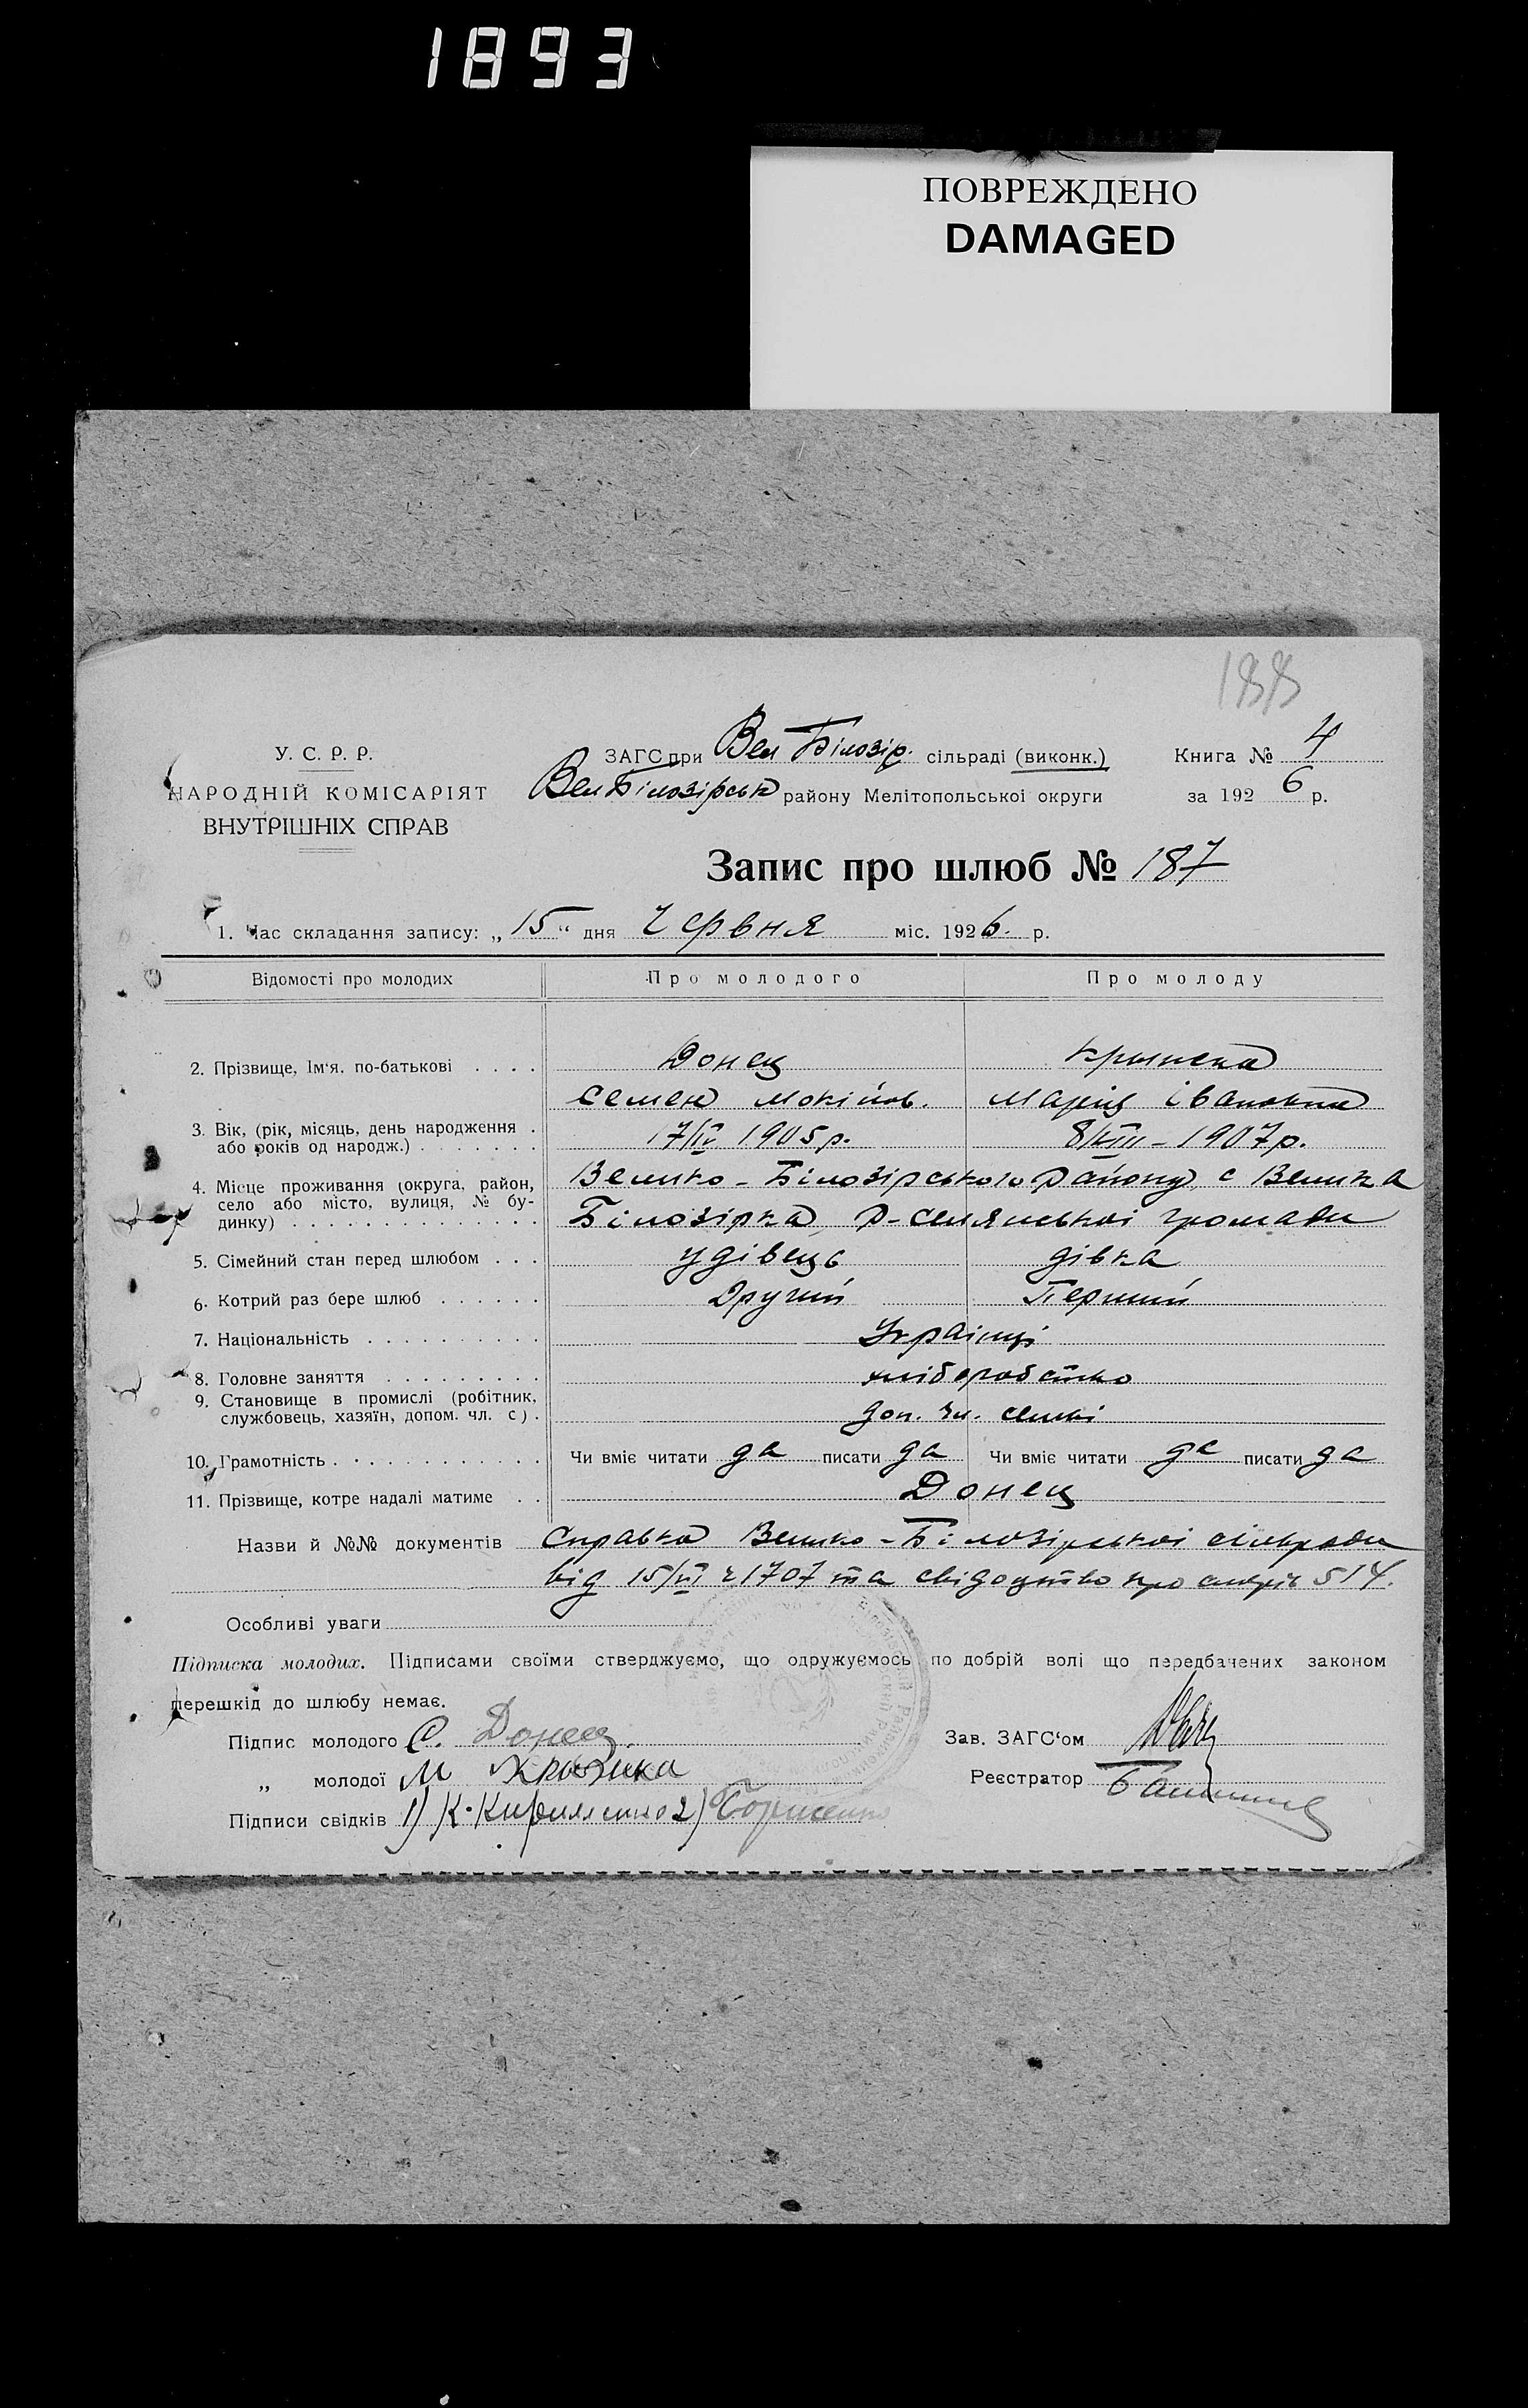 1893
ПОВРЕЖДЕНО
DAMAGED
188
У. С. Р. Р.
НАРОДНІЙ КОМІСАРІЯТ
ВНУТРІШНІХ СПРАВ
ЗАГС при Вел Білозір. сільраді (виконк.)
Вел Білозірськ району Мелітопольської округи
Книга № 4
за 1926 р.
Запис про шлюб № 187
1. Час складання запису: „15“ дня Червня міс. 1926. р.
Відомості про молодих Про молодого Про молоду
2. Прізвище, Ім'я, по-батькові . . . . Донец
Семен Мокійов. Марія Івановна
3. Вік, (рік, місяць, день народження . 17/IV 1905 р. 8/VIII - 1907 р.
або років од народж.) . . . . . . .
4. Місце проживання (округа, район, Велико-Білозірського району, с Велика
село або місто, вулиця, № бу-
динку) . . . . . . . . . . . . . . Білозірка, громади
5. Сімейний стан перед шлюбом . . . удівець дівка
6. Котрий раз бере шлюб . . . . . . Другий Перший
7. Національність . . . . . . . . . . Українці
8. Головне заняття . . . . . . . . . хліборобство
9. Становище в промислі (робітник, службовець, хазяїн, допом. чл. с) . доп. чл. семьі
10. Грамотність . . . . . . . . . . . . Чи вміє читати да писати да Чи вміє читати да писати да
11. Прізвище, котре надалі матиме . . Донец
Назви й №№ документів Справка Велико-Білозірської сільради
від 15/VI ч 1707 та свідоцтво про смерть 514.
Особливі уваги
Підписка молодих. Підписами своїми стверджуємо, що одружуємось по добрій волі що передбачених законом
перешкід до шлюбу немає.
Підпис молодого С. Донец.
„ молодої М
Підписи свідків 1) К. Кириленко 2)
Зав. ЗАГС'ом
Реєстратор